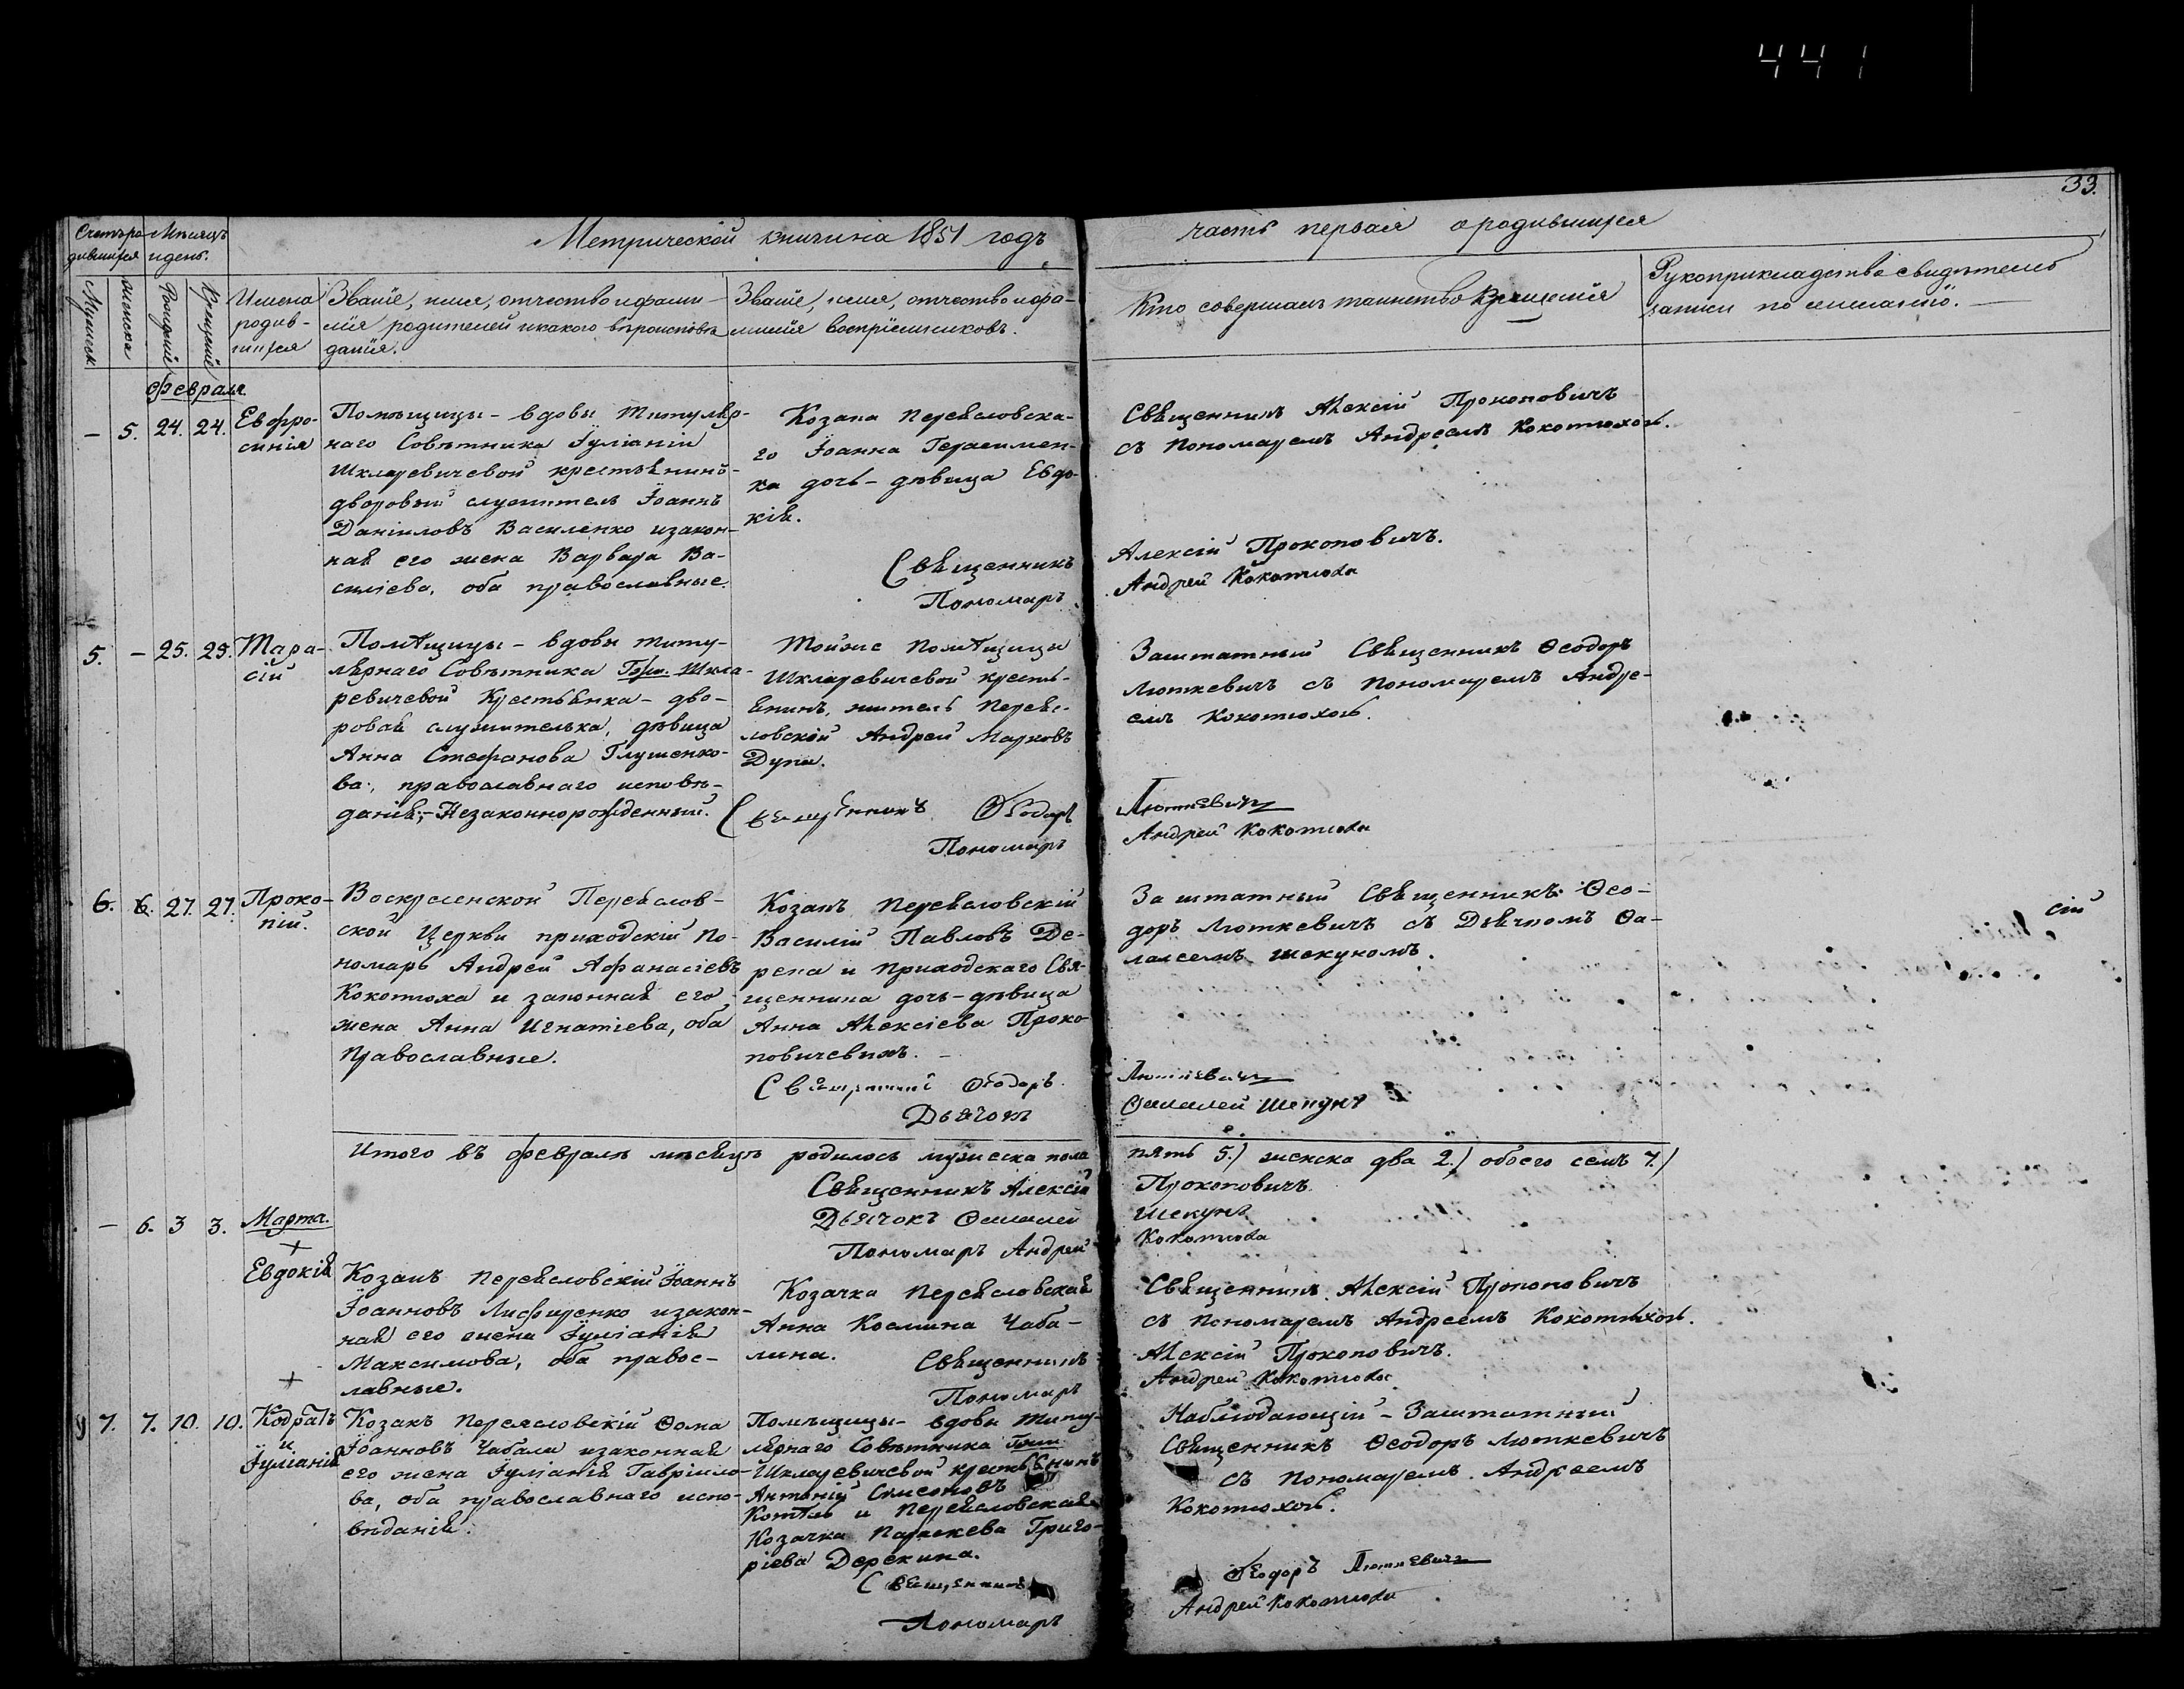 441
33.
Метрической книги на 1851 годъ
часть первая о родившихся
Счетъ ро-
дившихся
Мѣсяцъ
и день.
Мужеск.
женска
Рожденiе
Крещенiе
Имена
родив-
шихся
Званiе, имя, отчество и фами-
лiя родителей и какого вѣроисповѣ-
данiя.
Званiе, имя, отчество и фа-
милiя воспрiемниковъ.
Кто совершалъ таинство крещенiя
Рукоприкладство свидѣтелей
записи по желанiю.
Февраля
– 5. 24. 24.
Евфро-
синiя
Помѣщицы - вдовы титуляр-
наго Совѣтника Iулiанiи
Шкляревичевой крестьянинъ
дворовый служитель Iоаннъ
Данiиловъ Василенко и закон-
ная его жена Варвара Ва-
силiева, оба православные.
Козака Переясловска-
го Iоанна Герасимен-
ка дочь - дѣвица Евдо-
кiя.
Священникъ
Пономарь
Священникъ Алексiй Прокоповичъ
съ Пономаремъ Андреемъ Кокотюхою.
Алексiй Прокоповичъ.
Андрей Кокотюха
5. – 25. 25.
Тара-
сiй
Помѣщицы - вдовы титу-
лярнаго Совѣтника Шкля-
ревичевой Крестьянка - дво-
ровая служителька, дѣвица
Анна Стефанова Глушенко-
ва, православнаго исповѣ-
данiя, - Незаконнорожденный.
Тойже Помѣщицы
Шкляревичевой кресть-
янинъ, житель Переяс-
ловскiй Андрей Марковъ
Дупа.
Священникъ Ѳеодоръ
Пономарь
Заштатный Священникъ Ѳеодоръ
Люткевичъ съ Пономаремъ Андре-
емъ Кокотюхою.
Люткевичъ
Андрей Кокотюха
6. 6. 27. 27.
Проко-
пiй.
Воскресенской Переяслов-
ской Церкви приходскiй По-
номарь Андрей Афанасiевъ
Кокотюха и законная его
жена Анна Игнатiева, оба
православные.
Козакъ Переясловскiй
Василiй Павловъ Де-
река и приходскаго Свя-
щенника дочь - дѣвица
Анна Алексiева Проко-
повичевихъ. –
Священникъ Ѳеодоръ
Дьячокъ
Заштатный Священникъ Ѳео-
доръ Люткевичъ съ Дьячкомъ Ѳа-
лалеемъ Шекуномъ.
Люткевичъ
Ѳалалей Шекунъ
сiй
Итого въ февралѣ мѣсяцѣ родилось мужеска пола
пять 5.) женска два 2.) обоего семь 7.)
Священникъ Алексiй
Прокоповичъ.
Дьячокъ Ѳалалей
Шекунъ
Пономарь Андрей
Кокотюха
– 6. 3 3.
Марта.
Евдокiя
Козакъ Переясловскiй Iоаннъ
Iоанновъ Лисфиренко и закон-
ная его жена Iулiанiя
Максимова, оба правос-
лавные.
Козачка Переясловская
Анна Космина Чаба-
лина.
Священникъ
Пономарь
Священникъ Алексiй Прокоповичъ
съ Пономаремъ Андреемъ Кокотюхою.
Алексiй Прокоповичъ.
Андрей Кокотюха
7. 7. 10. 10.
Кодратъ
и
Iулiанiя
Козакъ Переясловскiй Ѳома
Iоанновъ Чабала и законная
его жена Iулiанiя Гаврiило-
ва, оба православнаго испо-
вѣданiя.
Помѣщицы - вдовы титу-
лярнаго Совѣтника
Шкляревичевой крестьянинъ
Антонiй Симеоновъ
Котъ и Переясловская
Козачка Параскева Григо-
рiева Дерекина.
Священникъ
Пономарь
Наблюдающiй - Заштатный
Священникъ Ѳеодоръ Люткевичъ
съ Пономаремъ Андреемъ
Кокотюхою.
Ѳеодоръ Люткевичъ
Андрей Кокотюха